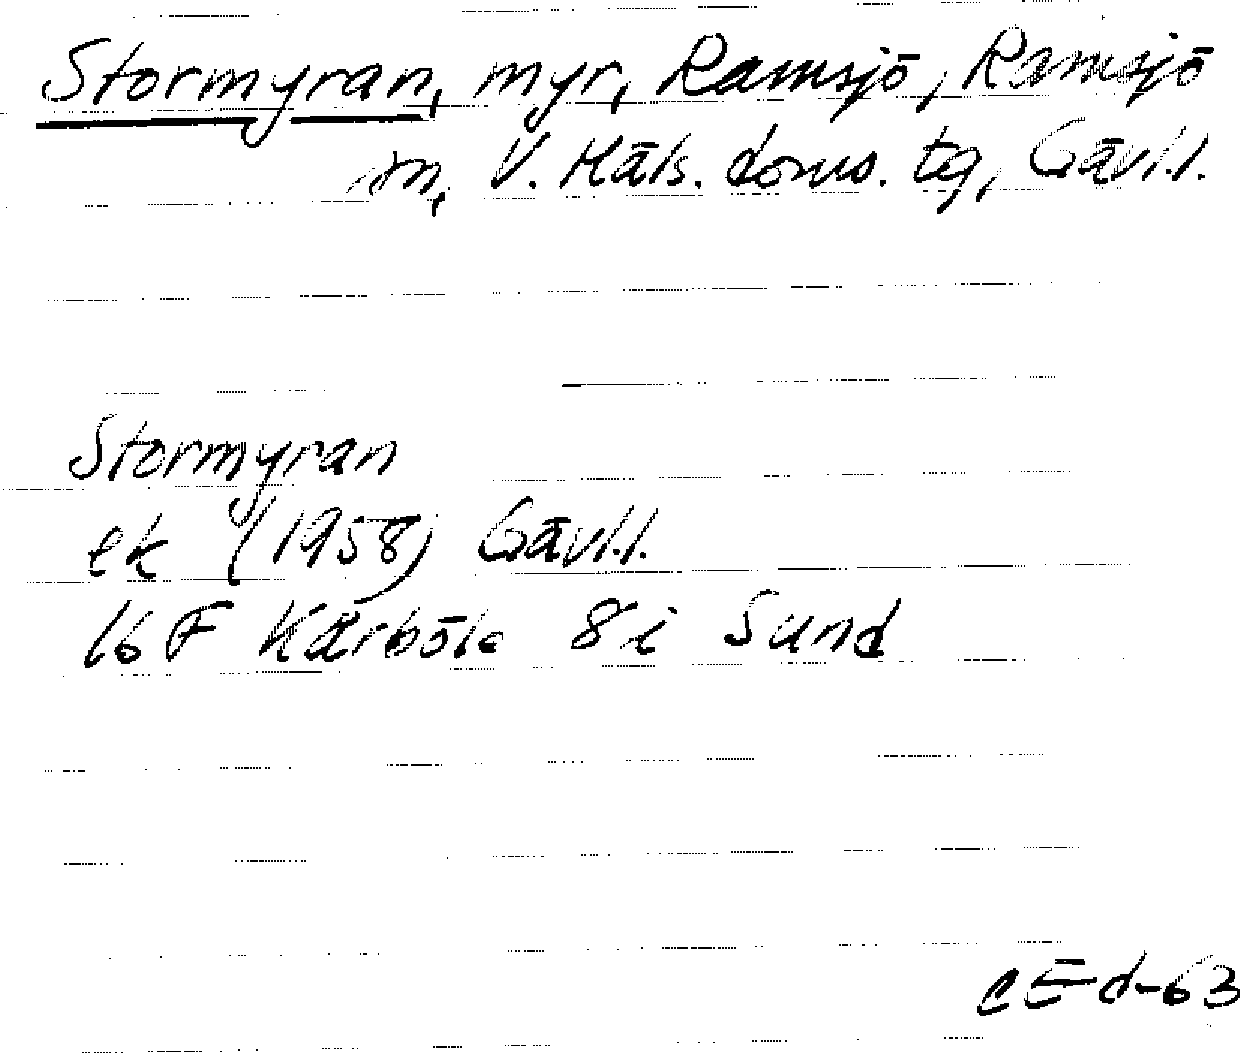 Stormyran, myr, Ramsjö, Ramsjö
sn, V. Häls. doms. tg, Gävl.l.
Stormyran
ek (1958) Gävl.l.
16 F Kårböle 8 i Sund
CE-d-63